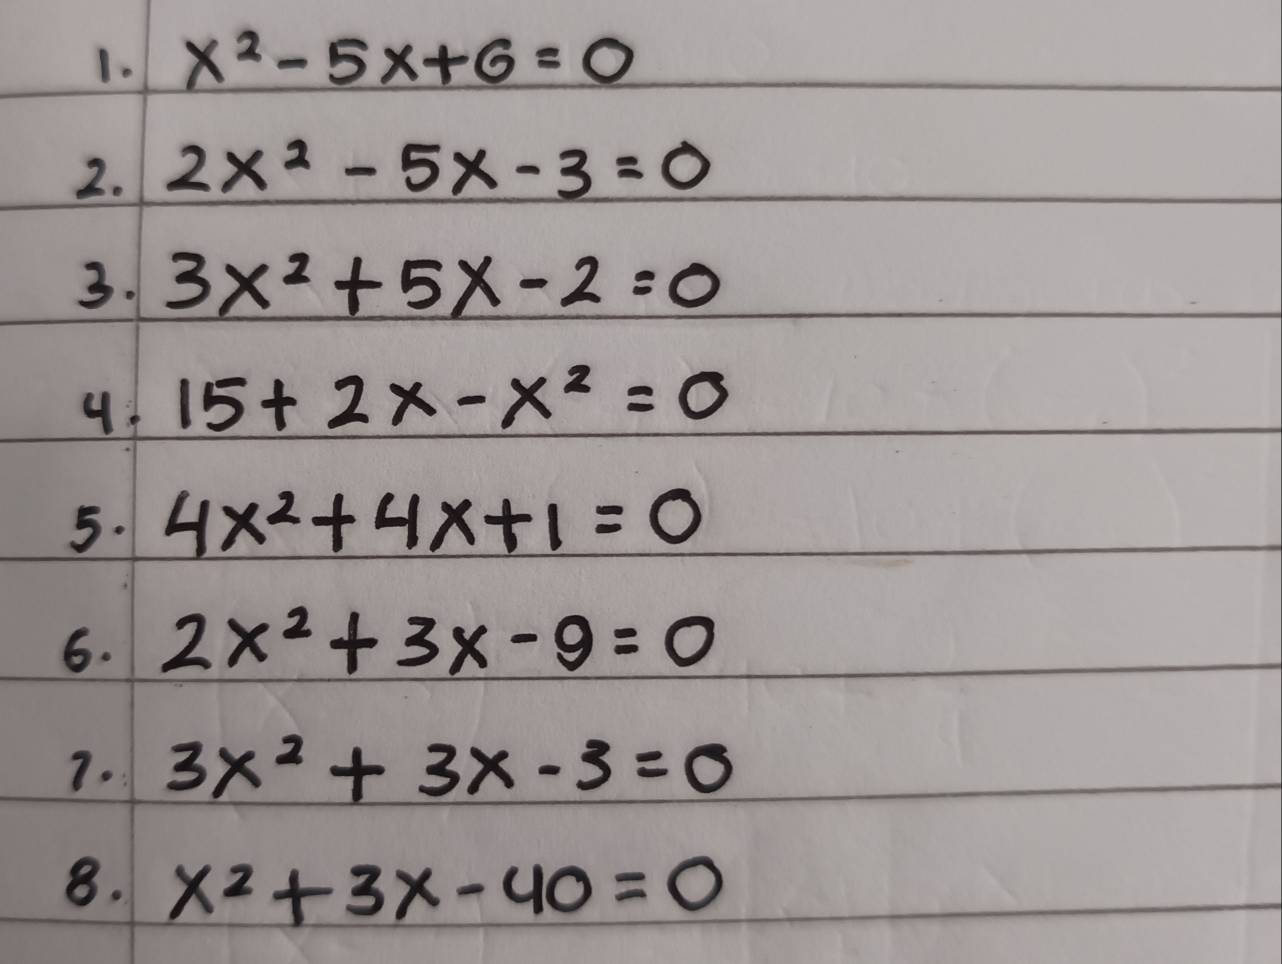 1. x² - 5x + 6 = 0
2. 2x² - 5x - 3 = 0
3. 3x² + 5x - 2 = 0
4. 15 + 2x - x² = 0
5. 4x² + 4x + 1 = 0
6. 2x² + 3x - 9 = 0
7. 3x² + 3x - 3 = 0
8. x² + 3x - 40 = 0